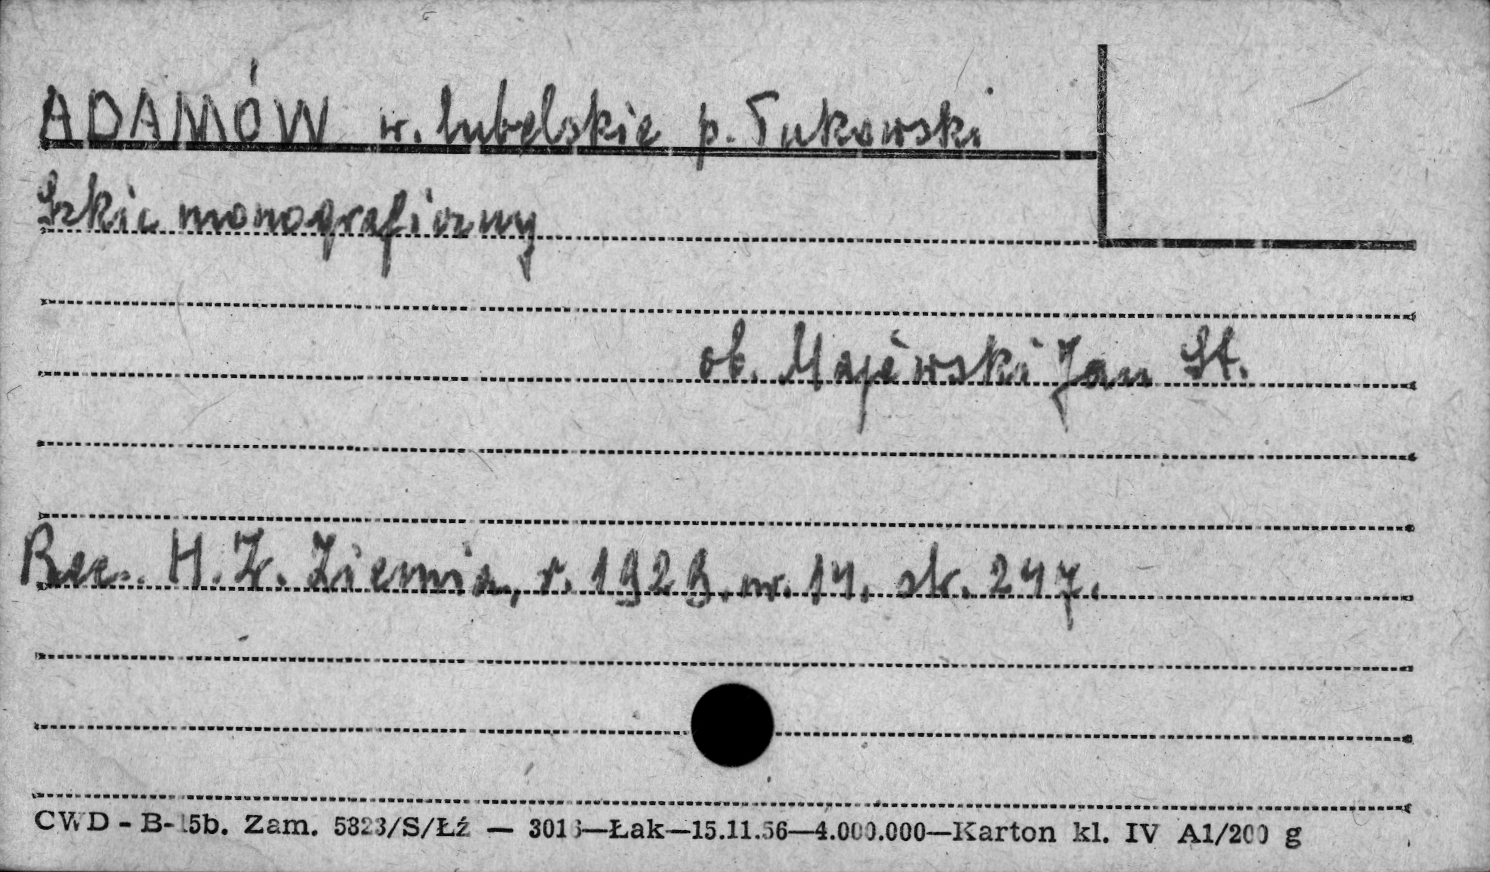 ADAMÓW w. lubelskie p. Łukowski
Szkic monograficzny
ob. Majewski Jan St.
Rec. H. Z. Ziemia, r. 1929. nr. 14. str. 247.
CWD - B-15b. Zam. 5323/S/Łź — 3016—Łak—15.11.56—4.000.000—Karton kl. IV A1/200 g